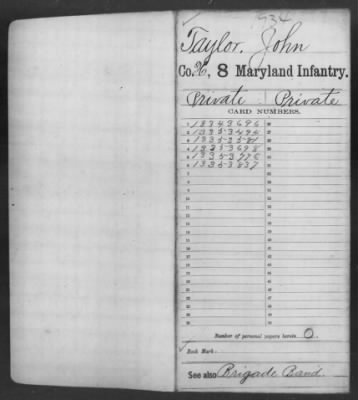 934
Taylor, John
Co. H, 8 Maryland Infantry.
Private Private
CARD NUMBERS.
1 13343696
2 13353494
3 13353581
4 13353698
5 13353776
6 13353837
Number of personal papers herein 0.
Book Mark:
See also Brigade Band.